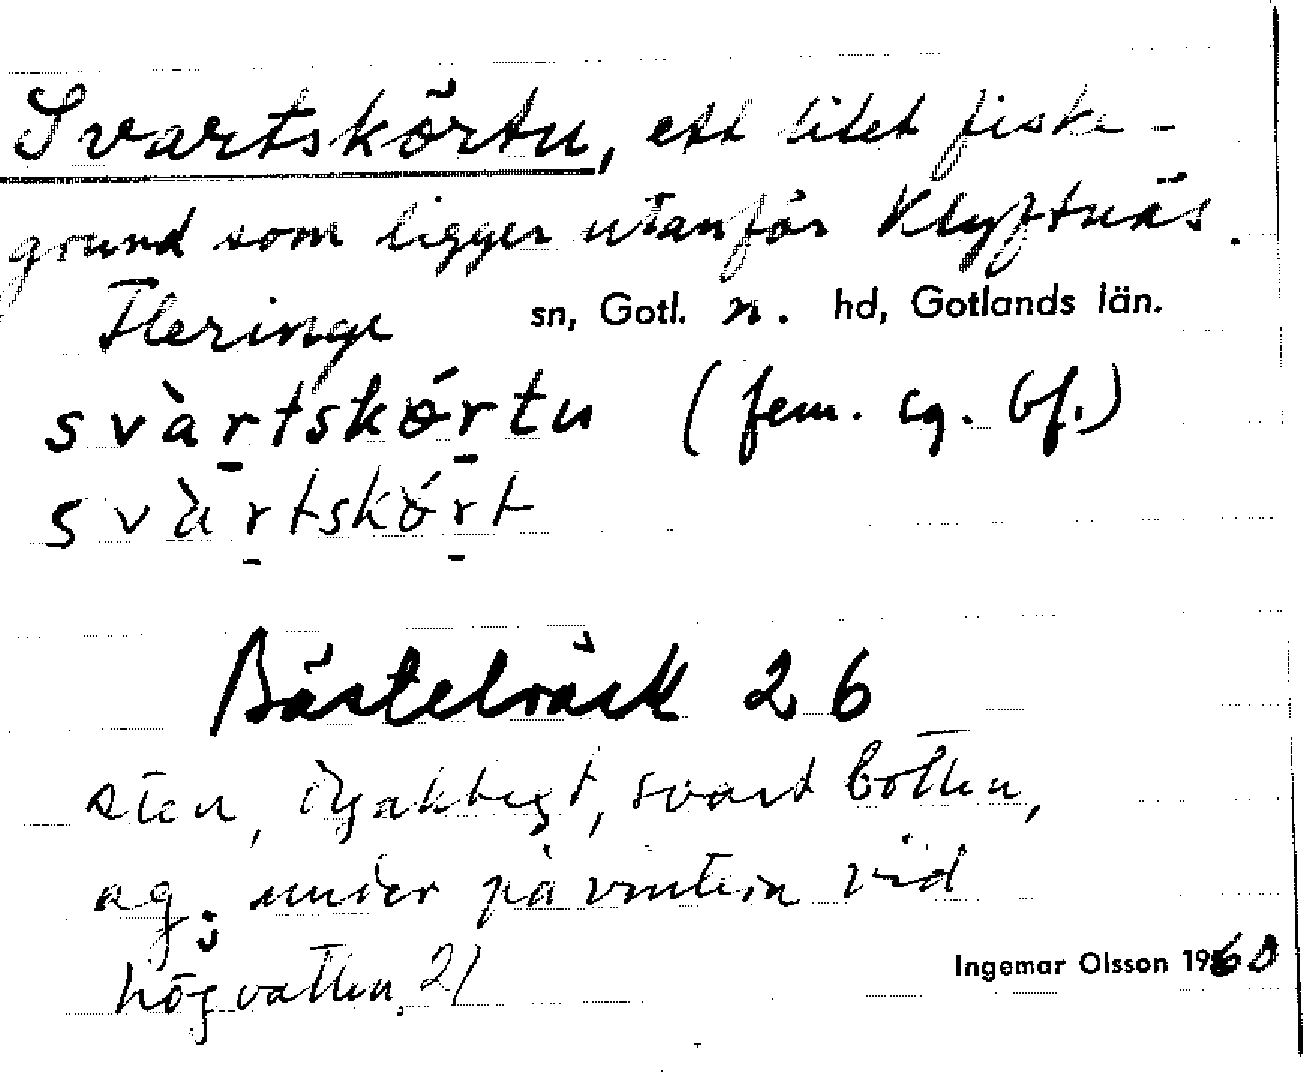 Svartskörtu, ett litet fiske-
grund som ligger utanför Klyftnäs.
Fleringe sn, Gotl. n. hd, Gotlands län.
svàr̠tskór̠tu (fem. sg. bf.)
svàr̠tskór̠t
Bästeträsk 26
sten, dyaktigt, svart botten,
ag; under på vintern vid
högvatten, 21
Ingemar Olsson 1960